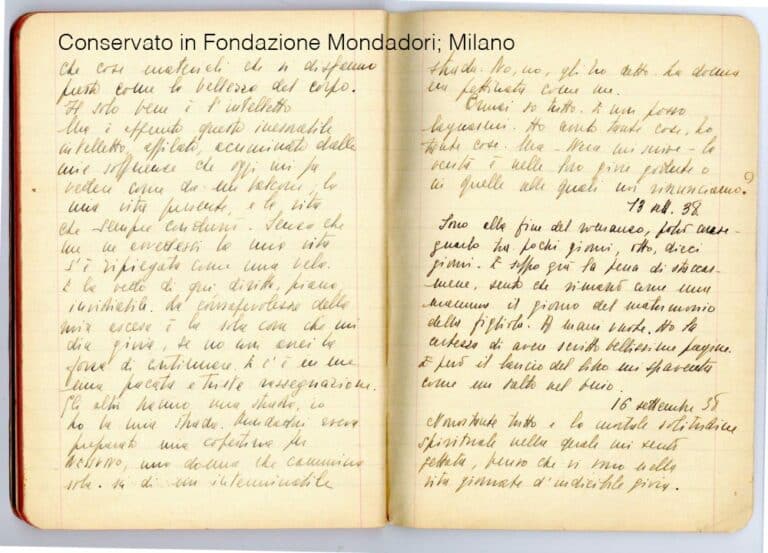 Conservato in Fondazione Mondadori; Milano
che cose materiali che si disfanno
presto come la bellezza del corpo.
Il solo bene è l'intelletto
Ma è appunto questo inesorabile
intelletto, affilato, acuminato dalle
mie sofferenze che oggi mi fa
vedere come da un balcone, la
mia vita presente, e la vita
che sempre condurrò. Senza che
me ne avvedessi la mia vita
s'è ripiegata come una vela.
E la vedo di qui diritta, piana,
inviolabile. La consapevolezza della
mia ascesa è la sola cosa che mi
dia gioia, se no non avrei la
forza di continuare. E c'è in me
una pacata e triste rassegnazione.
Gli altri hanno una strada, io
ho la mia strada. Mondadori aveva
preparato una copertina per
una donna che cammina
sola. su di un interminabile
strada. No, no, gli ho detto. La donna
era pettinata come me.
Ormai so tutto. E non posso
lagnarmi. Ho avuto tante cose, ho
tante cose. Ma la
verità è nelle cose godute o
in quelle alle quali noi rinunciamo?
13 sett. 38
Sono alla fine del romanzo, potrò
fra pochi giorni, otto, dieci
giorni. E soffro già la pena di staccar-
mene, sento che rimarrò come una
mamma il giorno del matrimonio
della figliola. A mani vuote. Ho la
certezza di avere scritto bellissime pagine.
E però il lancio del libro mi spaventa
come un salto nel buio.
16 settembre 38
Nonostante tutto e la mortale solitudine
spirituale nella quale mi sento
gettata, penso che vi sono nella
vita giornate d'indicibile gioia.